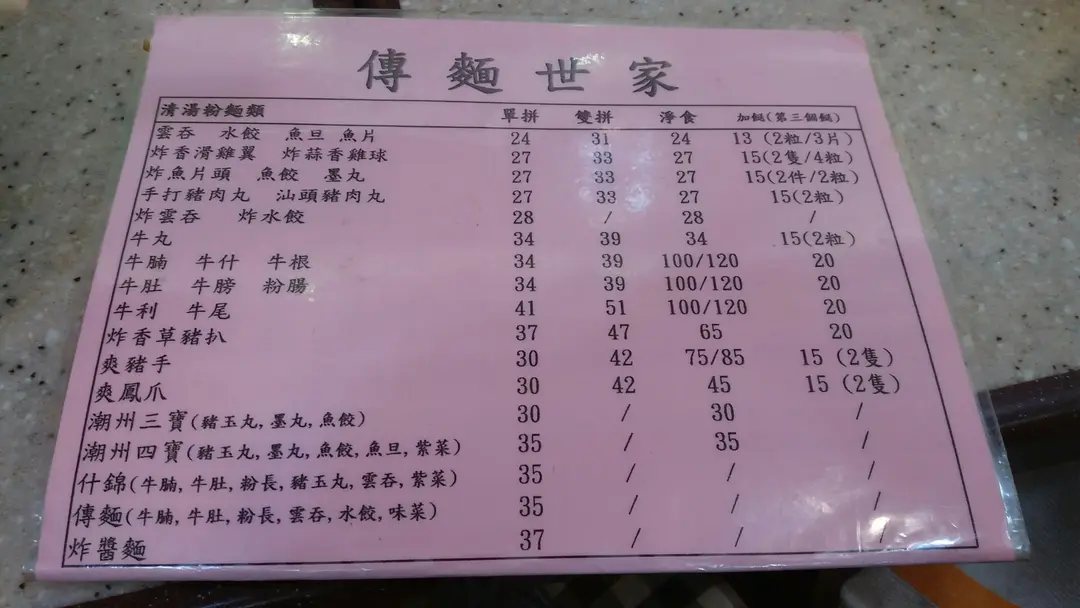 傳麵世家
清湯粉麵類 單拼 雙拼 淨食 加餸(第三個餸)
雲吞 水餃 魚旦 魚片 24 31 24 13 (2粒/3片)
炸香滑雞翼 炸蒜香雞球 27 33 27 15(2隻/4粒)
炸魚片頭 魚餃 墨丸 27 33 27 15(2件/2粒)
手打豬肉丸 汕頭豬肉丸 27 33 27 15(2粒)
炸雲吞 炸水餃 28 / 28 /
牛丸 34 39 34 15(2粒)
牛腩 牛什 牛根 34 39 100/120 20
牛肚 牛膀 粉腸 34 39 100/120 20
牛利 牛尾 41 51 100/120 20
炸香草豬扒 37 47 65 20
爽豬手 30 42 75/85 15 (2隻)
爽鳳爪 30 42 45 15 (2隻)
潮州三寶(豬玉丸,墨丸,魚餃) 30 / 30 /
潮州四寶(豬玉丸,墨丸,魚餃,魚旦,紫菜) 35 / 35 /
什錦(牛腩,牛肚,粉長,豬玉丸,雲吞,紫菜) 35 / / /
傳麵(牛腩,牛肚,粉長,雲吞,水餃,味菜) 35 / / /
炸醬麵 37 / / /